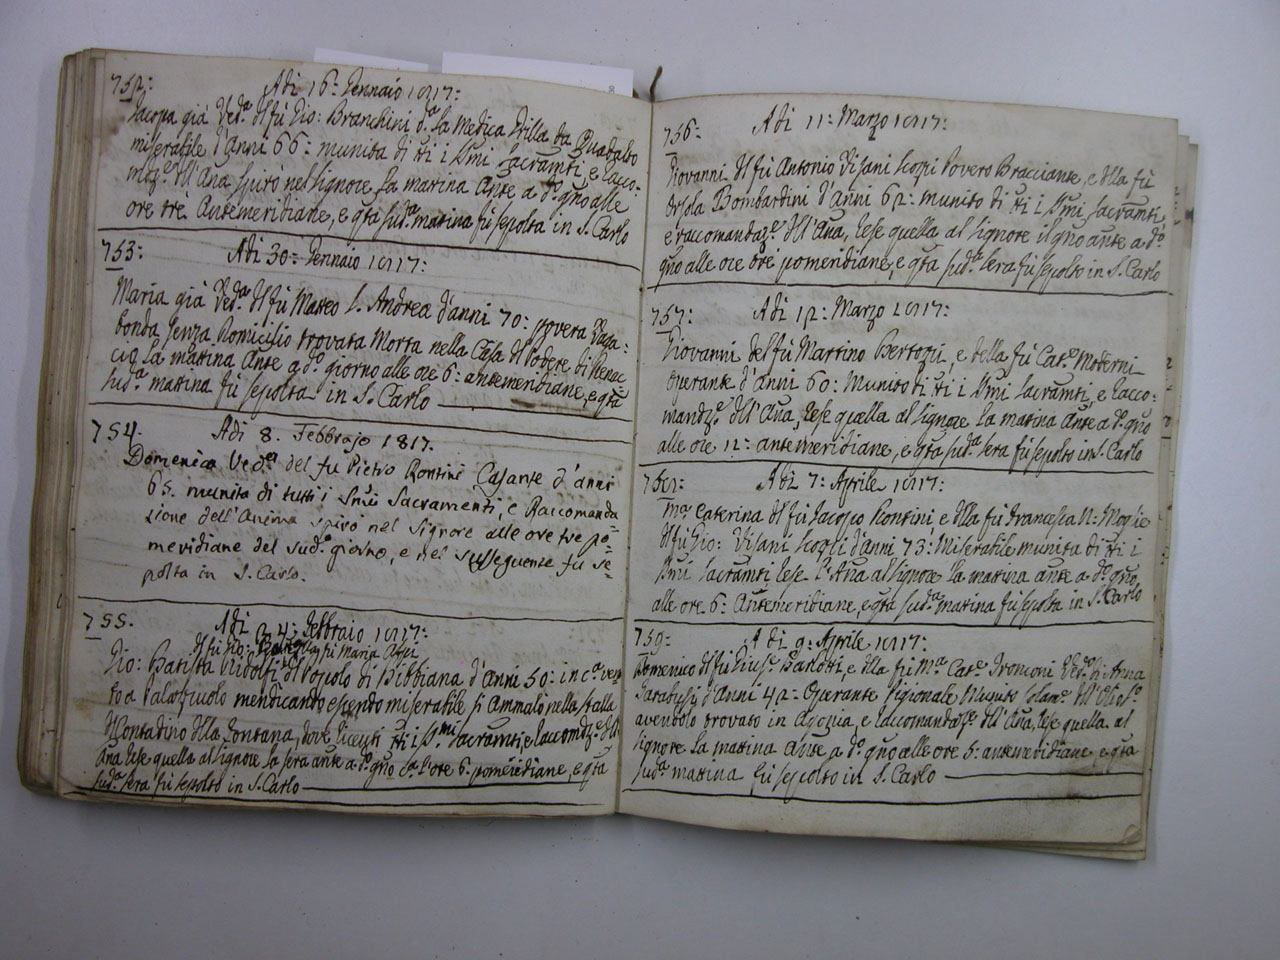 752:
Adi 16: Gennaio 1817:
Jacopa già Ved.a del fu Gio: Branchini d.a la Medica della da Qualto
miserabile d'Anni 66: munita di tti i SSmi Sacramti, e Racco-
mdz.e dell'Ana spirò nel Signore la matina Ante a d.o gno alle
ore tre Antemeridiane, e qta sud.a matina fù sepolta in S. Carlo
753:
Adi 30: Gennaio 1817:
Maria già Ved.a del fù Matteo S. Andrea d'anni 70: povera Vaga:
bonda senza Domicilio trovata Morta nella Casa del Podere di
la matina Ante a d.o giorno alle ore 6: antemeridiane, e qta
sud.a matina fù sepolta in S. Carlo
754.
Adi 8. Febbrajo 1817.
Domenica Ved.a del fu Pietro Rontini Casante d'anni
65. munita di tutti i Smi Sacramenti, e Raccomanda
zione dell'Anima spirò nel Signore alle ore tre po=
meridiane del sud.o giorno, e nel susseguente fu se=
polta in S. Carlo.
755.
Adi 24: Febbraio 1817:
del fu Gio: Maria
Gio: Batista Ridolfi del Popolo di Bibbiana d'Anni 50: in c.a venu
to a Palazzuolo mendicando essendo miserabile si Ammalò nella stalla
del Contadino della Fontana, dove ricevuti tti i S.mi Sacramti, e Raccomdz.e dell
Ana rese quella al Signore la sera ante a d.o gno a l'ore 6. pomeridiane, e qta
sud.a sera fù sepolto in S. Carlo
756:
Adi 11: Marzo 1817:
Giovanni del fù Antonio Visani Scopi Povero Bracciante, e della fù
Orsola Bombardini d'anni 62: munito di tti i SSmi Sacramti,
e raccomandaz.e dell'Ana, rese quella al Signore il gno ante a d.o
gno alle ore tre pomeridiane, e qta sud.a sera fù sepolto in S. Carlo
757:
Adi 12: Marzo 1817:
Giovanni del fù Martino Bertoqui, e della fù Cat.a Moderni
Operante d'anni 60: Munito di tti i SSmi Sacramti, e Racco-
mandz.e dell'Ana, rese quella al Signore la matina Ante a d.o gno
alle ore 12: antemeridiane, e qta sud.a sera fù sepolto in S. Carlo
758:
Adi 7: Aprile 1817:
M.a Caterina del fù Jacopo Rontini, e della fù Francesca N: Moglie
del fù Gio: Visani Scopi d'anni 73: Miserabile munita di tti i
SSmi Sacramti rese l'Ana al Signore la matina ante a d.o gno
alle ore 6: Antemeridiane, e qta sud.a matina fù sepolta in S. Carlo
759:
Adi 9: Aprile 1817:
Domenico del fù Gius.e Bandoti, e della fù M.a Cat.a Tronconi Ved.o di Anna
d'Anni 42: Operante Pigionale Munito solam.e dell'Olio S.o
avendolo trovato in Agonia, e Raccomandaz.e dell'Ana, rese quella al
Signore la matina Ante a d.o gno alle ore 5: antemeridiane, e qta
sud.a matina fù sepolto in S. Carlo